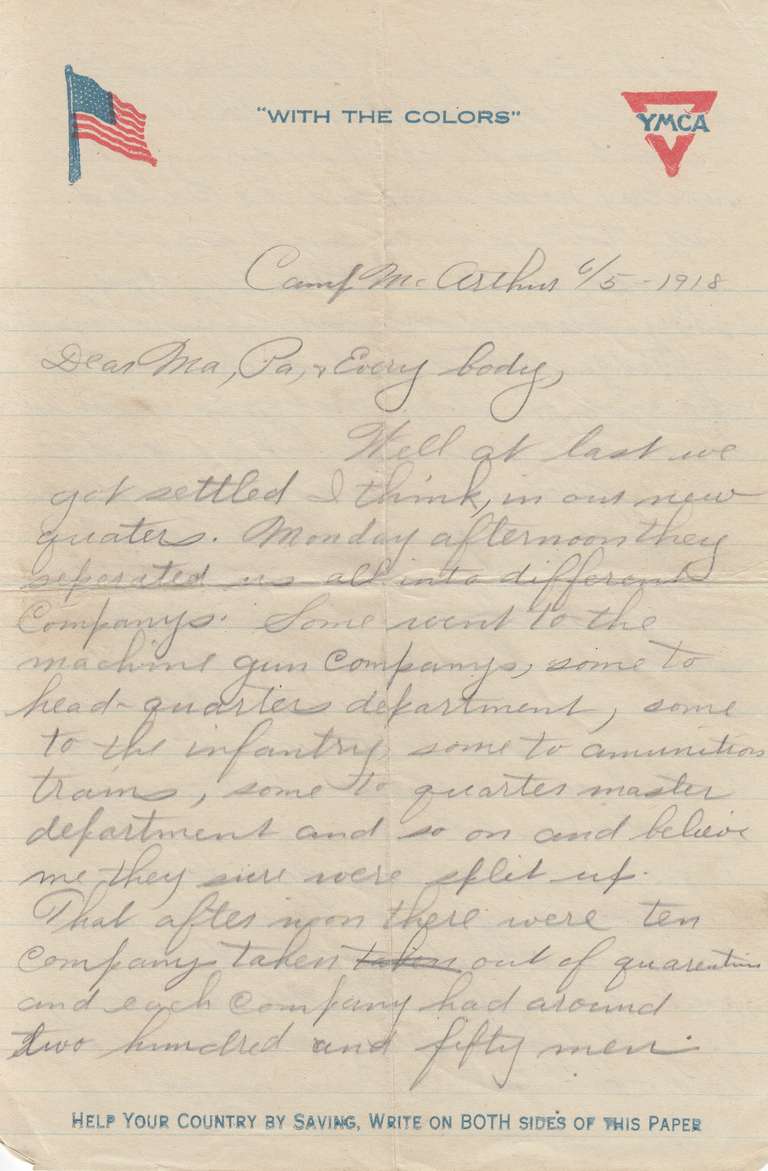 "WITH THE COLORS"
YMCA
Camp Mc Arthur 6/5 - 1918
Dear Ma, Pa, & Every body,
Well at last we
got settled I think, in our new
quaters. Monday afternoon they
seperated us all into different
Companys. Some went to the
machine gun Companys, some to
head-quarters department, some
to the infantry, some to amunition
trains, some to quarter master
department and so on and believe
me they sure were split up.
That after noon there were ten
Companys taken taken out of quarentine
and each Company had around
two hundred and fifty men.
HELP YOUR COUNTRY BY SAVING, WRITE ON BOTH SIDES OF THIS PAPER